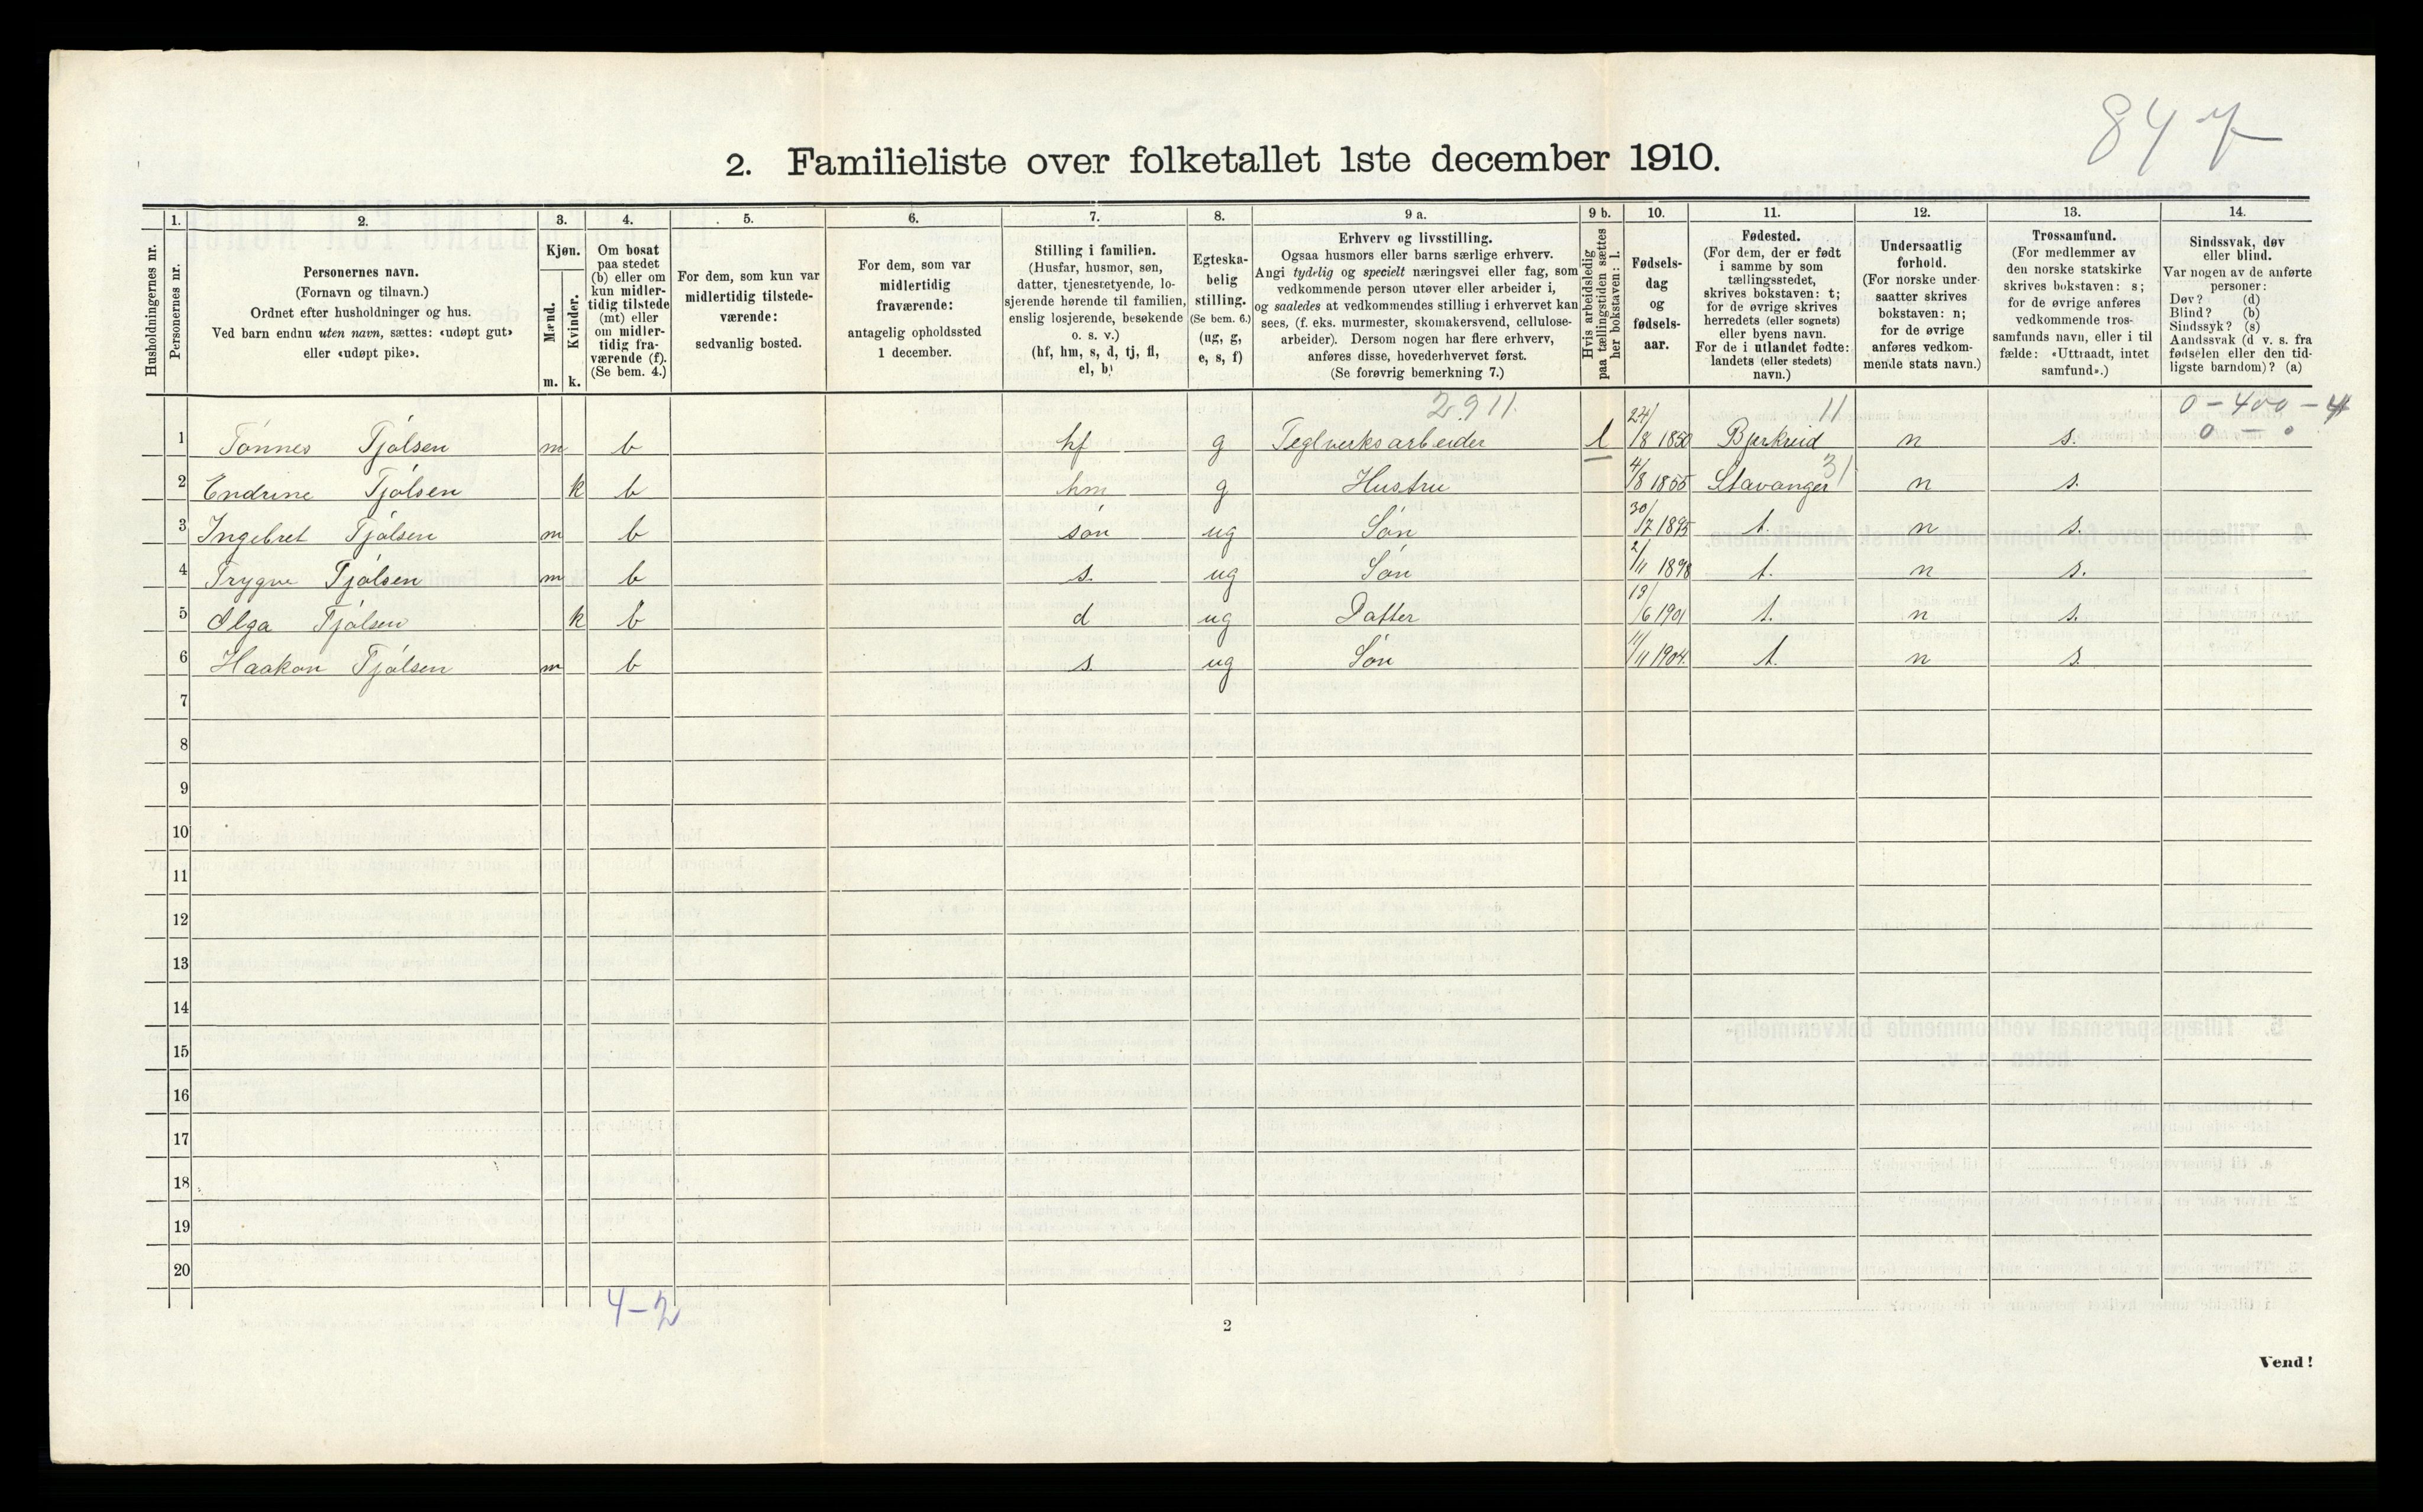 847
2. Familieliste over folketallet 1ste december 1910.
1. 2. 3. 4. 5. 6. 7. 8. 9 a. 9 b. 10. 11. 12. 13. 14.
Husholdningernes nr.
Personernes nr.
Personernes navn.
(Fornavn og tilnavn.)
Ordnet efter husholdninger og hus.
Ved barn endnu uten navn, sættes: «udøpt gut»
eller «udøpt pike».
Kjøn.
Mænd.
Kvinder.
m. k.
Om bosat
paa stedet
(b) eller om
kun midler-
tidig tilstede
(mt) eller
om midler-
tidig fra-
værende (f).
(Se bem. 4.)
For dem, som kun var
midlertidig tilstede-
værende:
sedvanlig bosted.
For dem, som var
midlertidig
fraværende:
antagelig opholdssted
1 december.
Stilling i familien.
(Husfar, husmor, søn,
datter, tjenestetyende, lo-
sjerende hørende til familien,
enslig losjerende, besøkende
o. s. v.)
(hf, hm, s, d, tj, fl,
el, b)
Egteska-
belig
stilling.
(Se bem. 6.)
(ug, g,
e, s, f)
Erhverv og livsstilling.
Ogsaa husmors eller barns særlige erhverv.
Angi tydelig og specielt næringsvei eller fag, som
vedkommende person utøver eller arbeider i,
og saaledes at vedkommendes stilling i erhvervet kan
sees, (f. eks. murmester, skomakersvend, cellulose-
arbeider). Dersom nogen har flere erhverv,
anføres disse, hovederhvervet først.
(Se forøvrig bemerkning 7.)
Hvis arbeidsledig
paa tællingstiden sættes
her bokstaven: l.
Fødsels-
dag
og
fødsels-
aar.
Fødested.
(For dem, der er født
i samme by som
tællingsstedet,
skrives bokstaven: t;
for de øvrige skrives
herredets (eller sognets)
eller byens navn.
For de i utlandet fødte:
landets (eller stedets)
navn.)
Undersaatlig
forhold.
(For norske under-
saatter skrives
bokstaven: n;
for de øvrige
anføres vedkom-
mende stats navn.)
Trossamfund.
(For medlemmer av
den norske statskirke
skrives bokstaven: s;
for de øvrige anføres
vedkommende tros-
samfunds navn, eller i til
fælde: «Uttraadt, intet
samfund».)
Sindssvak, døv
eller blind.
Var nogen av de anførte
personer:
Døv? (d)
Blind? (b)
Sindssyk? (s)
Aandssvak (d v. s. fra
fødselen eller den tid-
ligste barndom)? (a)
2911. 11 0-400-4
0 - 0
1 Tønnes Tjølsen m b hf g Teglverksarbeider l 24/8 1850 Bjerkreid n s.
31
2 Endrine Tjølsen k b hm g Hustru 4/8 1855 Stavanger n s.
3 Ingebret Tjølsen m b søn ug Søn 30/7 1895 t. n s.
4 Trygve Tjølsen m b s. ug Søn 2/11 1898 t. n s.
5 Olga Tjølsen k b d ug Datter 19/6 1901 t. n s.
6 Haakon Tjølsen m b s. ug Søn 11/11 1904. t. n s.
7
8
9
10
11
12
13
14
15
16
17
18
19
20
4-2
2
Vend!